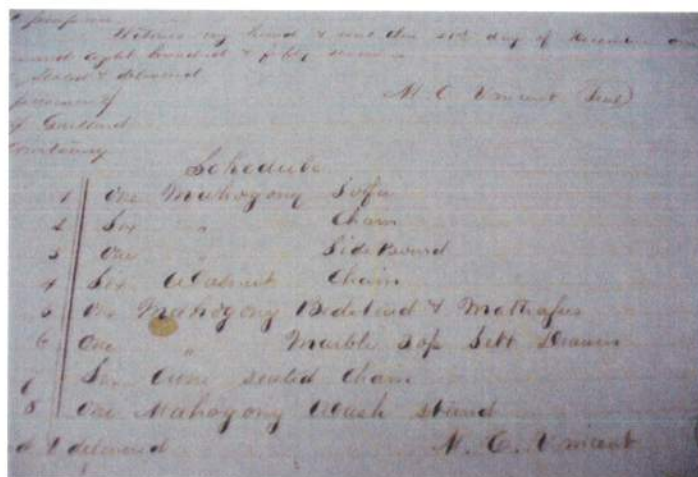 Witness my hand & seal this 21st day of December
eight hundred & fifty seven
Sealed & delivered
M. C. Vincent (Seal)
Schedule
1 One Mahogony Sofa
2 Six " Chairs
3 One " Side Board
4 Six Walnut Chairs
5 One Mahogony Bedstead & Mattrass
6 One " Marble Top Sett Drawers
Six Cane seated Chairs
8 One Mahogony Wash stand
& delivered M. C. Vincent